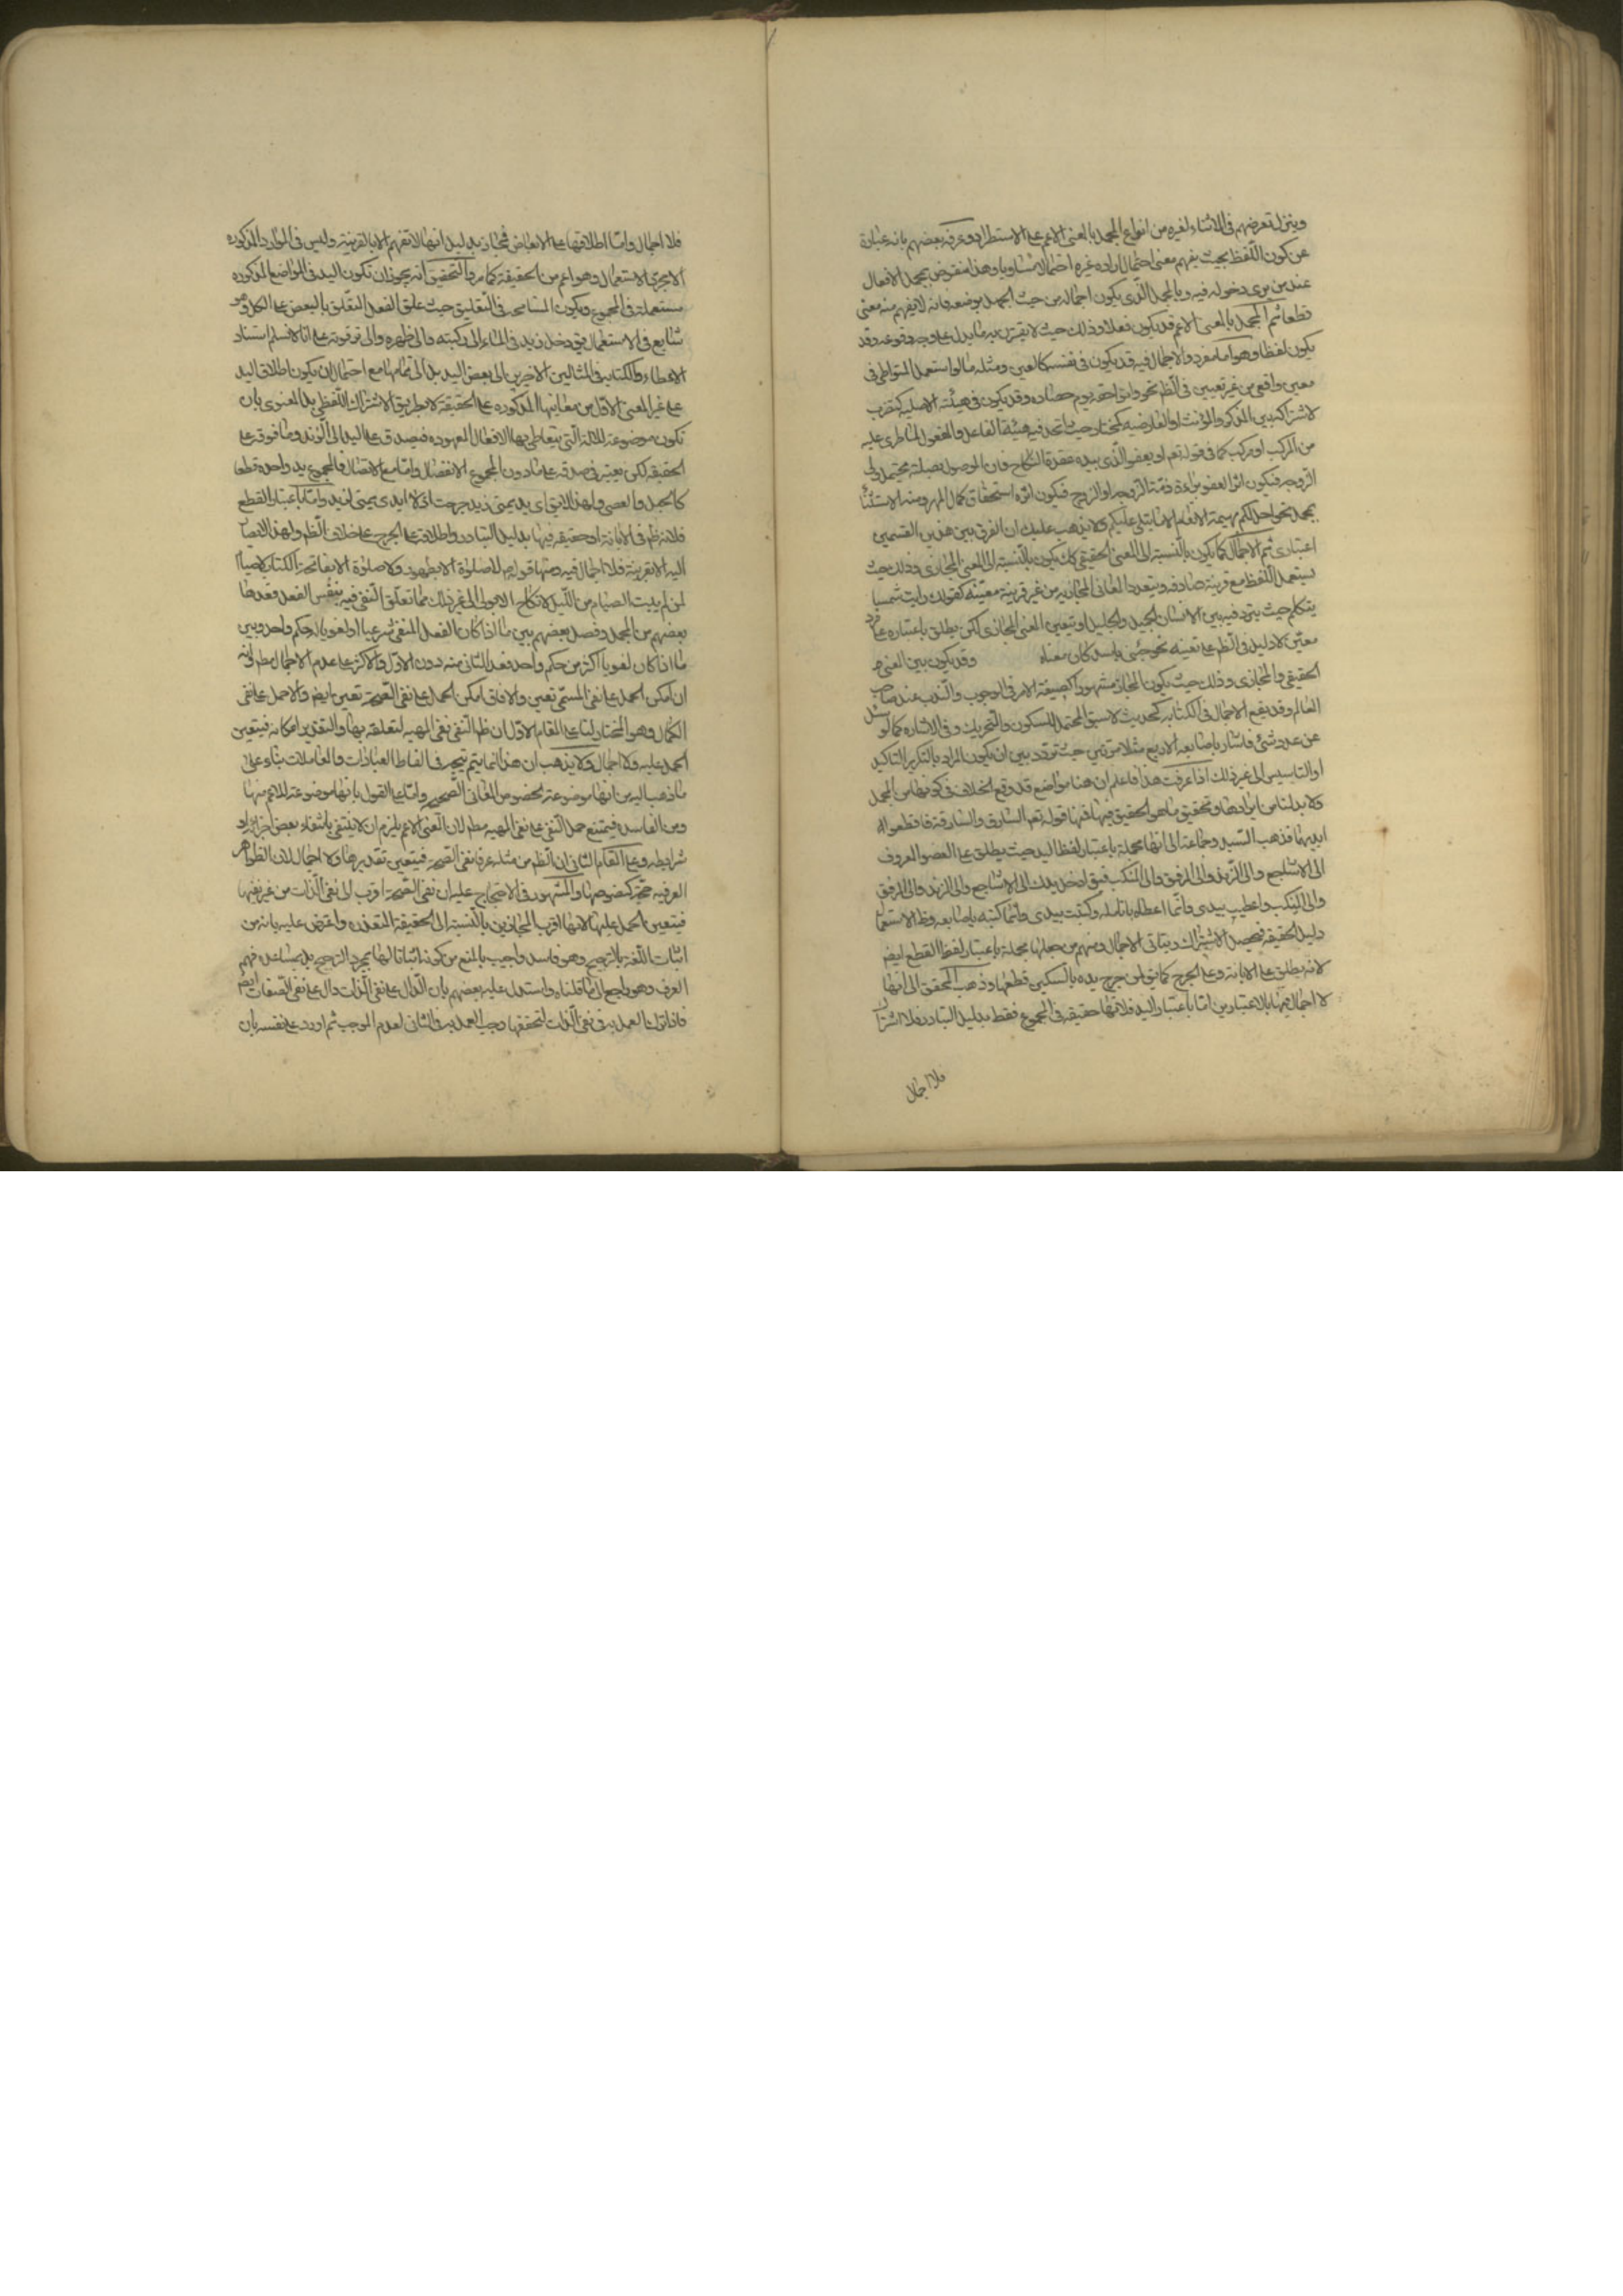 وينزل تعرضهم في الاثناء لغيره من انواع المجمل بالمعنى الاعم على الاستطراد وعرفه بعضهم بانه عبارة
عن كون اللفظ بحيث يفهم معنى احتمال اراده غيره احتمالا متساويا وهذا منقوض بمجمل الافعال
عند من يرى دخوله فيه وبالمجمل الذي يكون اجماله من حيث الجهل بوضعه فانه لا يفهم منه معنى
قطعا ثم المجمل بالمعنى الاعم قد يكون فعلا وذلك حيث لا يقترن به ما يدل على وجه وقوعه وقد
يكون لفظا وهو اما مفرد والاجمال فيه قد يكون في نفسه كالعين ومثله ما لو استعمل المتواطي في
معين واقعي من غير تعيين في الظ نحو واتوا حقه يوم حصاده وقد يكون في هيئته الاصليه كتضرب
لاشتراكه بين المذكر والمؤنث او العارضيه كمختار حيث اتحد فيه هيئة الفاعل والمفعول الطاري عليه
من المركب او مركب كما في قوله تعم او يعفو الذي بيده عقدة النكاح فان الموصول بصلته محتمل لولي
الزوجه فيكون اثر العفو براءة ذمة الزوج او الزوج فيكون اثره استحقاق كمال المهر ومنه الاستثناء
بمجمل نحو احل لكم بهيمة الانعام الا ما يتلى عليكم ولا يذهب عليك ان الفرق بين هذين القسمين
اعتباري ثم الاجمال كما يكون بالنسبة الى المعنى الحقيقي كك يكون بالنسبة الى المعنى المجازي وذلك حيث
يستعمل اللفظ مع قرينة صارفه ويتعدد المعاني المجازيه من غير قرينة معينه كقولك رايت شمسا
يتكلم حيث يتردد فيه بين الانسان الجميل والجليل او يتعين المعنى المجازي لكن يطلق باعتباره على فرد
معين لا دليل في الظ على تعيينه نحو جئني باسد كان معناه وقد يكون بين المعنى
الحقيقي والمجازي وذلك حيث يكون المجاز مشهورا كصيغة الامر في الوجوب والندب عند صاحب
المعالم وقد يقع الاجمال في الكتابه كحديث لا سبق المحتمل للسكون والتحريك وفي الاشاره كما لو سئل
عن عدد شئ فاشار باصابعه الاربع مثلا مرتين حيث تردد بين ان يكون المراد بالتكرير التاكيد
او التاسيس الى غير ذلك اذا عرفت هذا فاعلم ان هنا مواضع قد وقع الخلاف في كونها من المجمل
ولا بد لنا من ايرادها وتحقيق ما هو الحقيق فيها فمنها قوله تعم السارق والسارقة فاقطعوا
ايديهما فذهب السيد وجماعة الى انها مجملة باعتبار لفظ اليد حيث يطلق على العضو المعروف
الى الاشاجع والى الزند والى المرفق والى المنكب فيق ادخل يدك الى الاشاجع والى الزند والى المرفق
والى المنكب واعطيت بيدي وانما اعطاه بانامله وكتبت بيدي وانما كتبه باصابعه وظ الاستعمال
دليل الحقيقه فيحصل الاشتراك ويتاتى الاجمال ومنهم من جعلها مجملة باعتبار لفظ القطع ايض
لانه يطلق على الابانة وعلى الجرح كما يق لمن جرح يده بالسكين قطعها وذهب المحقق الى انها
لا اجمال فيها بالاعتبارين اما باعتبار اليد فلانها حقيقه في المجموع فقط بدليل التبادر فلا اشتراك
فلا اجمال
فلا اجمال واما اطلاقها على الابعاض فمجاز بدليل انها لا تفهم الا بالقرينة وليس في الموارد المذكوره
الا مجرد الاستعمال وهو اعم من الحقيقة كما مر والتحقيق انه يجوز ان تكون اليد في المواضع المذكوره
مستعملة في المجموع ويكون المسامحه في التعليق حيث علق الفعل المتعلق بالبعض على الكل وهو
شايع في الاستعمال يق دخل زيد في الماء الى ركبته والى ظهره والى ترقوته على انا لا نسلم استناد
الاعطاء والكتابه في المثالين الاخيرين الى بعض اليد بل الى تمامها مع احتمال ان يكون اطلاق اليد
على غير المعنى الاول من معانيها المذكوره على الحقيقة لا بطريق الاشتراك اللفظي بل المعنوي بان
تكون موضوعة للالة التي يتعاطى بها الافعال المعهوده فيصدق على اليد الى الزند وما فوقه على
الحقيقه لكن يعتبر في صدقه على ما دون المجموع الانفصال واما مع الاتصال فالمجموع يد واحده قطعا
كالحبل والعصى ولهذا لا يق اي يد يمنى زيد جرحت اذ لا ايدي يمنى لزيد واما باعتبار القطع
فلانه ظ في الابانة او حقيقه فيها بدليل التبادر واطلاقه على الجرح على خلاف الظ ولهذا لا يصار
اليه الا بقرينة فلا اجمال فيه ومنها قوله ص لا صلوة الا بطهور ولا صلوة الا بفاتحة الكتاب لا صيام
لمن لم يبيت الصيام من الليل لا نكاح الا بولي الى غير ذلك مما تعلق النفي فيه بنفس الفعل فعده
بعضهم من المجمل وفصل بعضهم بين ما اذا كان الفعل المنفي شرعيا او لغويا له حكم واحد وبين
ما اذا كان لغويا اكثر من حكم واحد فعد الثاني منه دون الاول والاكثر على عدم الاجمال مط لانه
ان امكن الحمل على نفي المسمى تعين والا فان امكن الحمل على نفي الصحة تعين ايض والا حمل على نفي
الكمال وهو المختار لنا على المقام الاول ان ظ النفي نفي المهيه لتعلقه بها والتقدير امكانه فيتعين
الحمل عليه ولا اجمال ولا يذهب ان هذا انما يتم يتجه في الفاظ العبادات والمعاملات بناء على
ما ذهب اليه من انها موضوعة لخصوص المعاني الصحيحه واما على القول بانها موضوعة للاعم منها
ومن الفاسده فيمتنع حمل النفي على نفي المهيه مط لان المعنى الاعم يلزم ان لا ينتفي بانتفاء بعض اجزائه او
شرايطه وعلى المقام الثاني ان الظ من مثله عرفا نفي الصحة فيتعين تقديرها ولا اجمال لان الظواهر
العرفيه حجة كنصوصها والمشهور في الاحتجاج عليه ان نفي الصحة اقرب الى نفي الذات من غيرها
فيتعين الحمل عليها لانها اقرب المجازين بالنسبة الى الحقيقة المتعذره واعترض عليه بانه من
اثبات اللغة بالترجيح وهو فاسد واجيب بالمنع من كونه اثباتا لها بمجرد الترجيح بل بمساعده فهم
العرف وهو راجع الى ما قلناه واستدل عليه بعضهم بان الدال على نفي الذات دال على نفي الصفات ايض
فاذا تركنا العمل به في نفي الذات لتحققها وجب العمل به في الثاني لعدم الموجب ثم اورد على نفسه بان